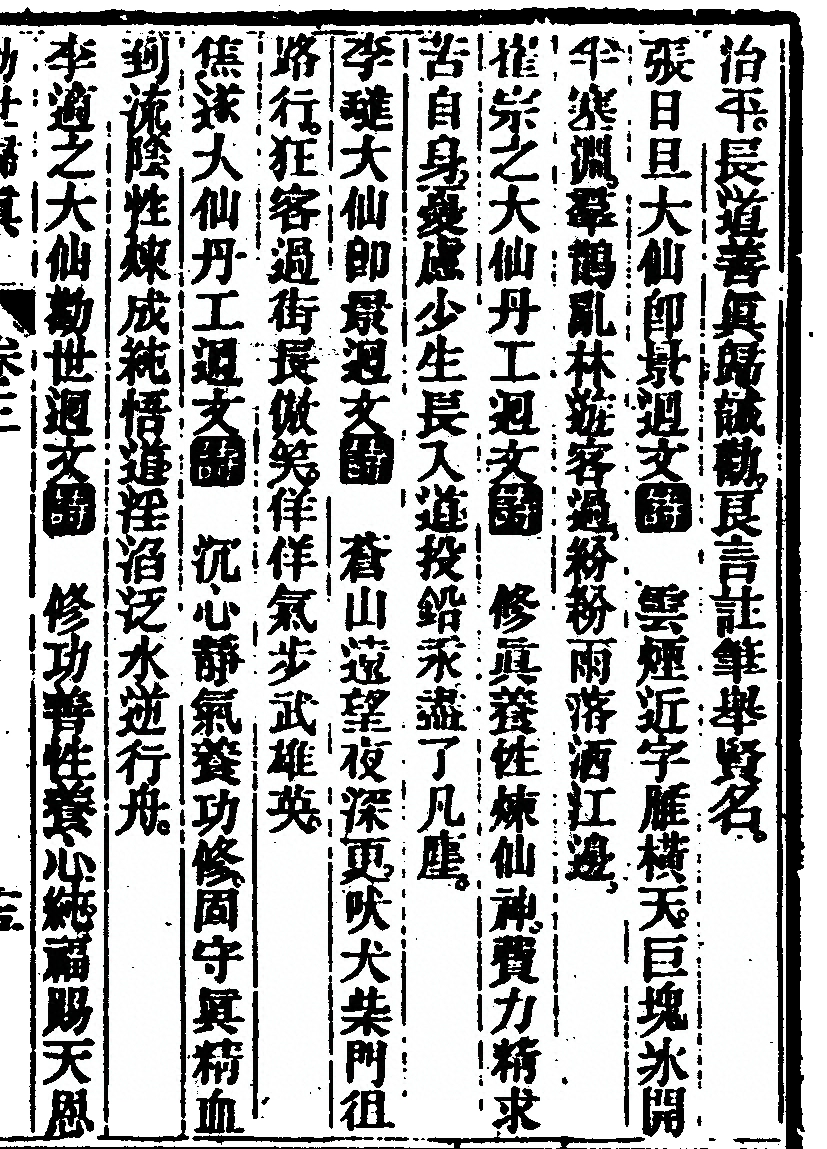 治平。長道善眞歸誠勸。良言註筆舉賢名。
張日旦大仙即景迴文詩 雲煙近字雁橫天。巨塊冰開
半寒淵。羣鵲亂林遊客過。紛紛雨落洒江邊。
崔宗之大仙丹工迴文詩 修眞養性煉仙神。費力精求
苦自身。憂慮少生長入道。投鉛汞盡了凡塵。
李璡大仙即景迴文詩 蒼山遠望夜深更。吠犬柴門徂
路行。狂客過街長傲笑。佯佯氣步武雄英。
焦遂大仙丹工迴文詩 沉心靜氣養功修。固守眞精血
到流。陰性煉成純悟道。淫滔泛水逆行舟。
李適之大仙勸世迴文詩 修功善性養心純。福賜天恩
勸世歸眞
卷三